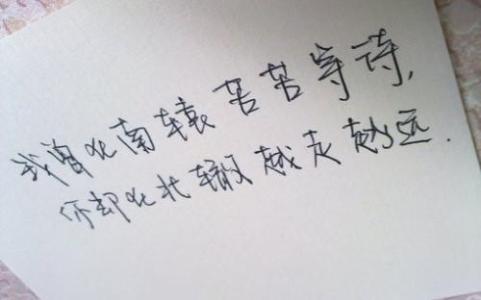 我曾以南辕苦苦等待，
你却以北辙越走越远．